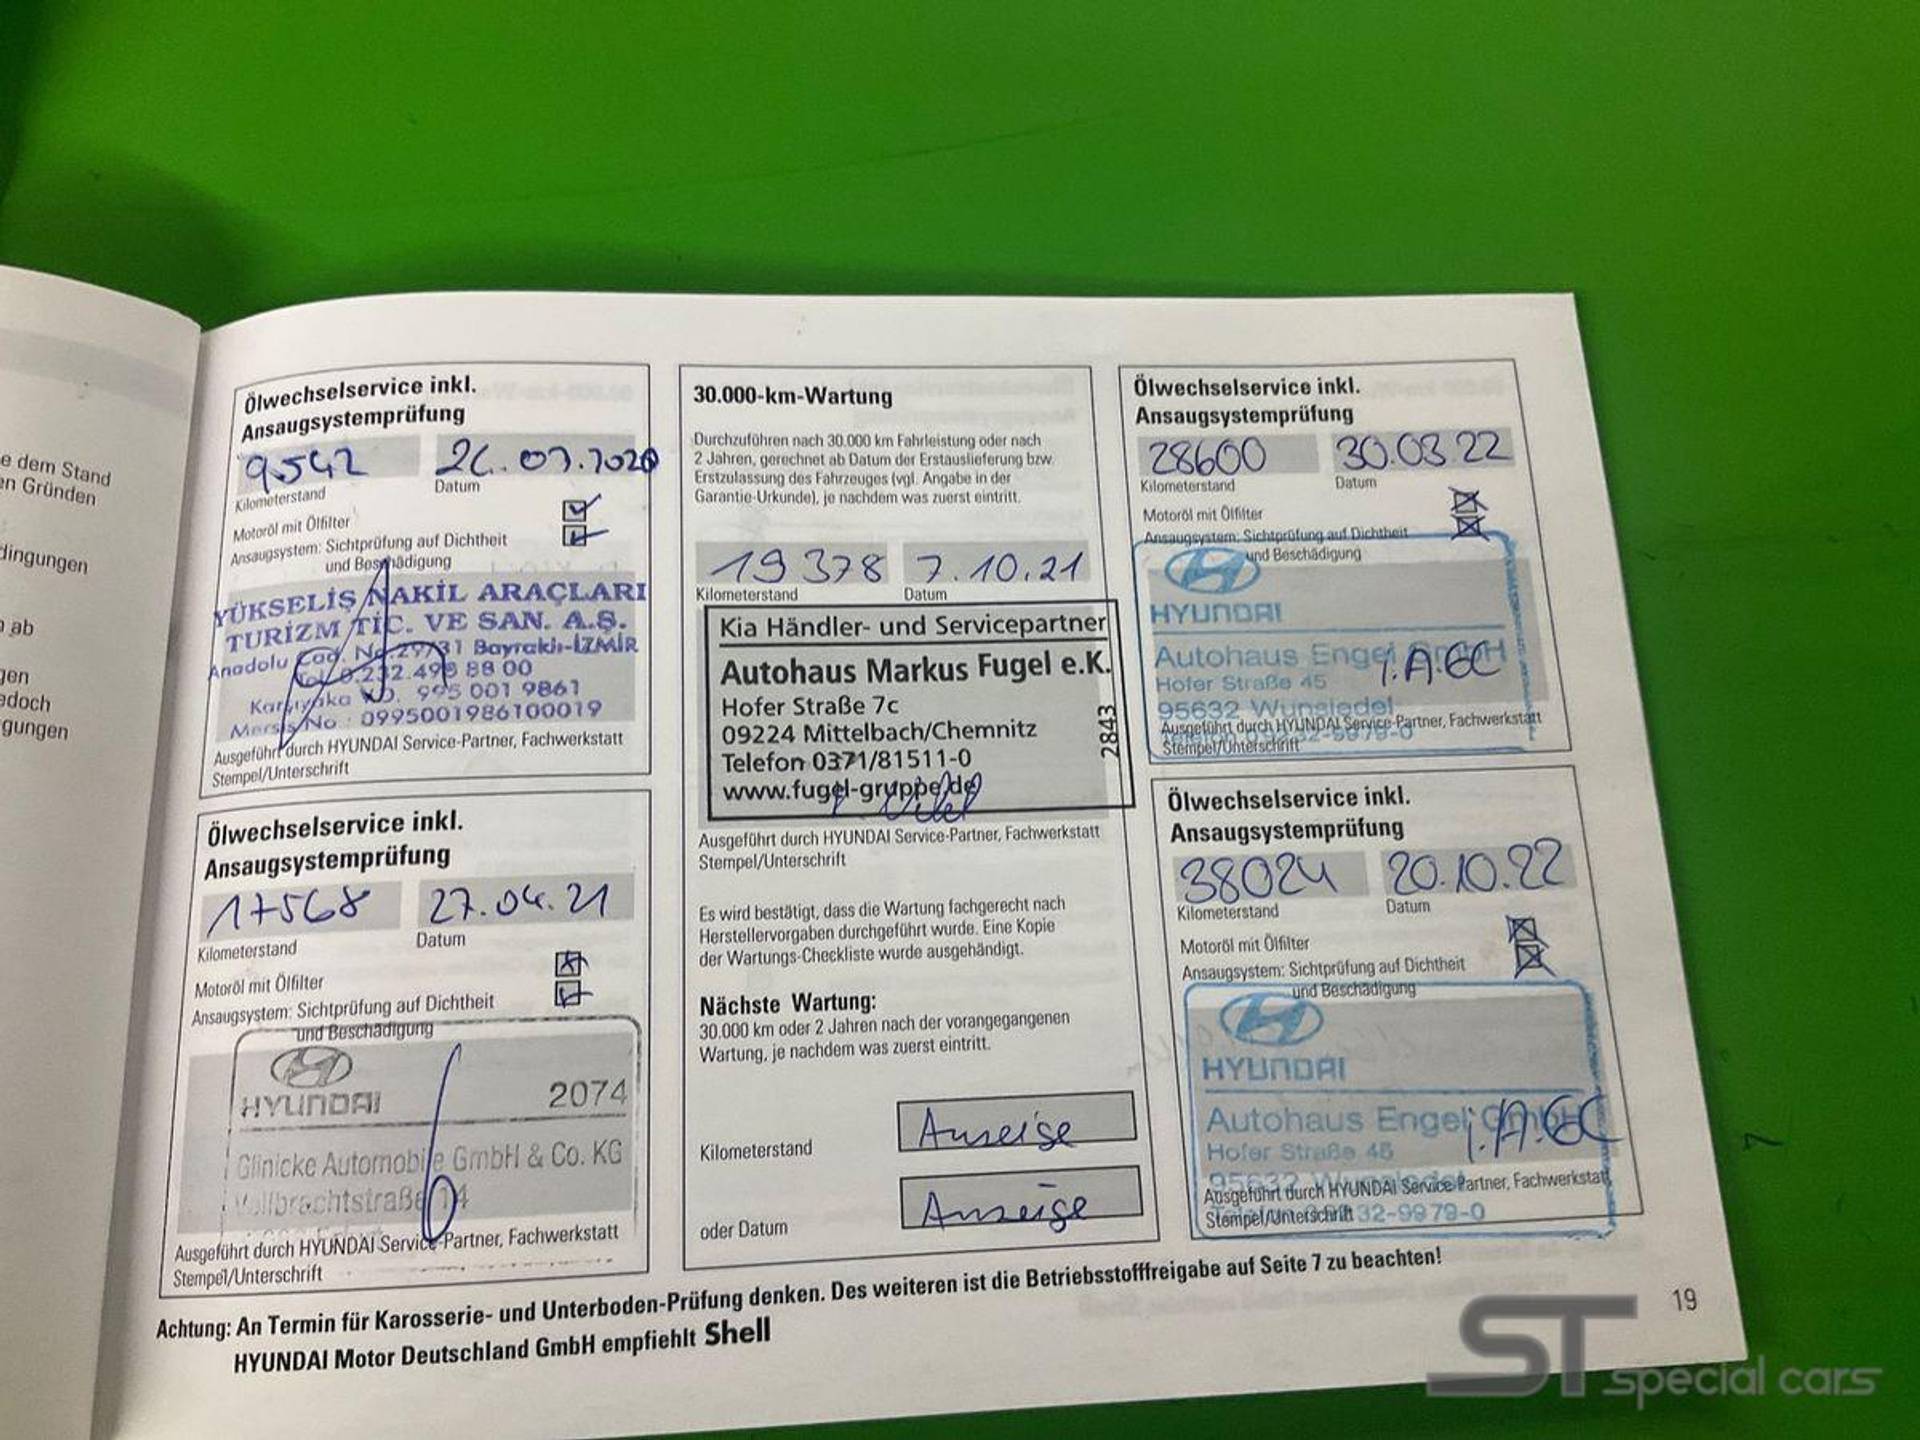 e dem Stand
en Gründen
dingungen
ab
gen
edoch
gungen
Ölwechselservice inkl.
Ansaugsystemprüfung
9542
Kilometerstand
Datum
Motoröl mit Ölfilter
Ansaugsystem: Sichtprüfung auf Dichtheit
und Beschädigung
YÜKSELİŞ NAKİL ARAÇLARI
TURİZM TİC. VE SAN. A.Ş.
Anadolu Cad. No:29/31 Bayraklı-İZMİR
Tel: 0.232.498 88 00
Karşıyaka V.D. 995 001 9861
Mersis No : 0995001986100019
Ausgeführt durch HYUNDAI Service-Partner, Fachwerkstatt
Stempel/Unterschrift
Ölwechselservice inkl.
Ansaugsystemprüfung
17568 27.04.21
Kilometerstand Datum
Motoröl mit Ölfilter
Ansaugsystem: Sichtprüfung auf Dichtheit
und Beschädigung
HYUNDAI 2074
Glinicke Automobile GmbH & Co. KG
Vollbrechtstraße 14
Ausgeführt durch HYUNDAI Service-Partner, Fachwerkstatt
Stempel/Unterschrift
30.000-km-Wartung
Durchzuführen nach 30.000 km Fahrleistung oder nach
2 Jahren, gerechnet ab Datum der Erstauslieferung bzw.
Erstzulassung des Fahrzeuges (vgl. Angabe in der
Garantie-Urkunde), je nachdem was zuerst eintritt.
19378 7.10.21
Kilometerstand Datum
Kia Händler- und Servicepartner
Autohaus Markus Fugel e.K.
Hofer Straße 7c
09224 Mittelbach/Chemnitz
Telefon 0371/81511-0
www.fugel-gruppe.de
2843
Ausgeführt durch HYUNDAI Service-Partner, Fachwerkstatt
Stempel/Unterschrift
Es wird bestätigt, dass die Wartung fachgerecht nach
Herstellervorgaben durchgeführt wurde. Eine Kopie
der Wartungs-Checkliste wurde ausgehändigt.
Nächste Wartung:
30.000 km oder 2 Jahren nach der vorangegangenen
Wartung, je nachdem was zuerst eintritt.
Kilometerstand Anzeige
oder Datum Anzeige
Ölwechselservice inkl.
Ansaugsystemprüfung
28600 30.03.22
Kilometerstand Datum
Motoröl mit Ölfilter
Ansaugsystem: Sichtprüfung auf Dichtheit
und Beschädigung
HYUNDAI
Autohaus Engel GmbH
i.A. GC
Hofer Straße 45
95632 Wunsiedel
Ausgeführt durch HYUNDAI Service-Partner, Fachwerkstatt
Stempel/Unterschrift
Ölwechselservice inkl.
Ansaugsystemprüfung
38024 20.10.22
Kilometerstand Datum
Motoröl mit Ölfilter
Ansaugsystem: Sichtprüfung auf Dichtheit
und Beschädigung
HYUNDAI
Autohaus Engel GmbH
i.A. GC
Hofer Straße 45
95632 Wunsiedel
Ausgeführt durch HYUNDAI Service-Partner, Fachwerkstatt
Stempel/Unterschrift
Achtung: An Termin für Karosserie- und Unterboden-Prüfung denken. Des weiteren ist die Betriebsstofffreigabe auf Seite 7 zu beachten!
HYUNDAI Motor Deutschland GmbH empfiehlt Shell
19
ST special cars